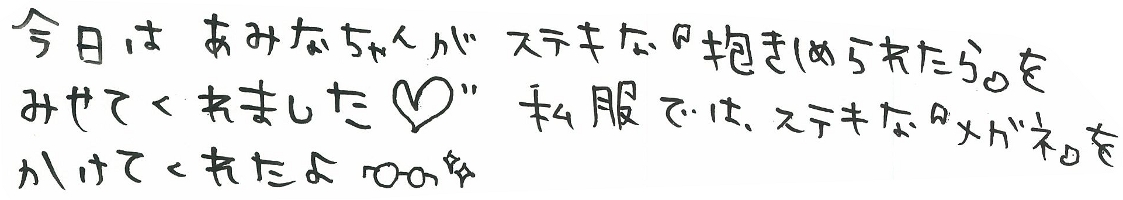 今日は あみなちゃんが ステキな『抱きしめられたら。』を
みせてくれました♡" 私服では、ステキな『メガネ』を
かけてくれたよ